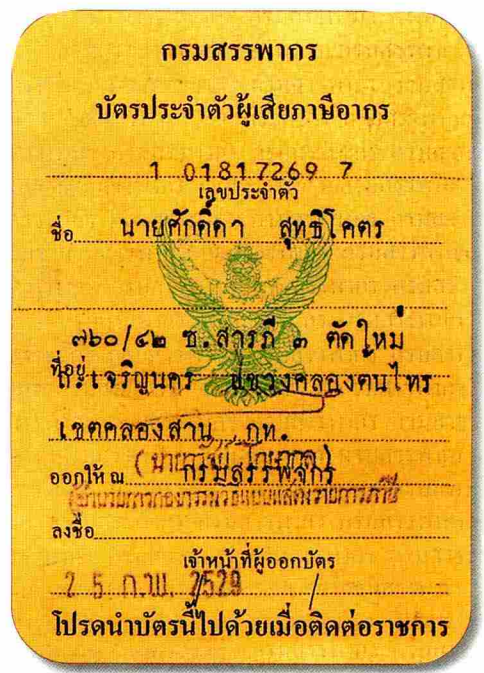 กรมสรรพากร
บัตรประจำตัวผู้เสียภาษีอากร
1 01817269 7
เลขประจำตัว
ชื่อ นายศักดิ์ดา สุทธิโคตร
๗๖๐/๔๒ ซ.สารภี ๓ ตัดใหม่
ที่อยู่ ถ.เจริญนคร แขวงคลองต้นไทร
เขตคลองสาน กท.
ออกให้ ณ กรมสรรพากร
ลงชื่อ
เจ้าหน้าที่ผู้ออกบัตร
25 ก.พ. 2529
โปรดนำบัตรนี้ไปด้วยเมื่อติดต่อราชการ